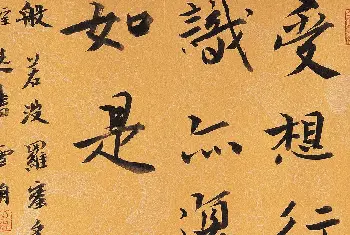 受想行
識亦復
如是
般若波羅蜜多
書雪